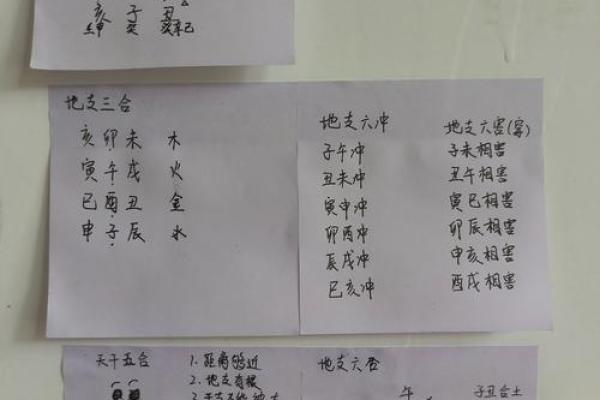 亥 子 丑
壬甲 癸 癸辛己
地支三合
亥 卯 未 木
寅 午 戌 火
巳 酉 丑 金
申 子 辰 水
地支六冲
子午冲
丑未冲
寅申冲
卯酉冲
辰戌冲
巳亥冲
地支六害(穿)
子未相害
丑午相害
寅巳相害
卯辰相害
申亥相害
酉戌相害
天干五合
1. 距离够近
2. 地支有根
地支六合
午
子丑合土